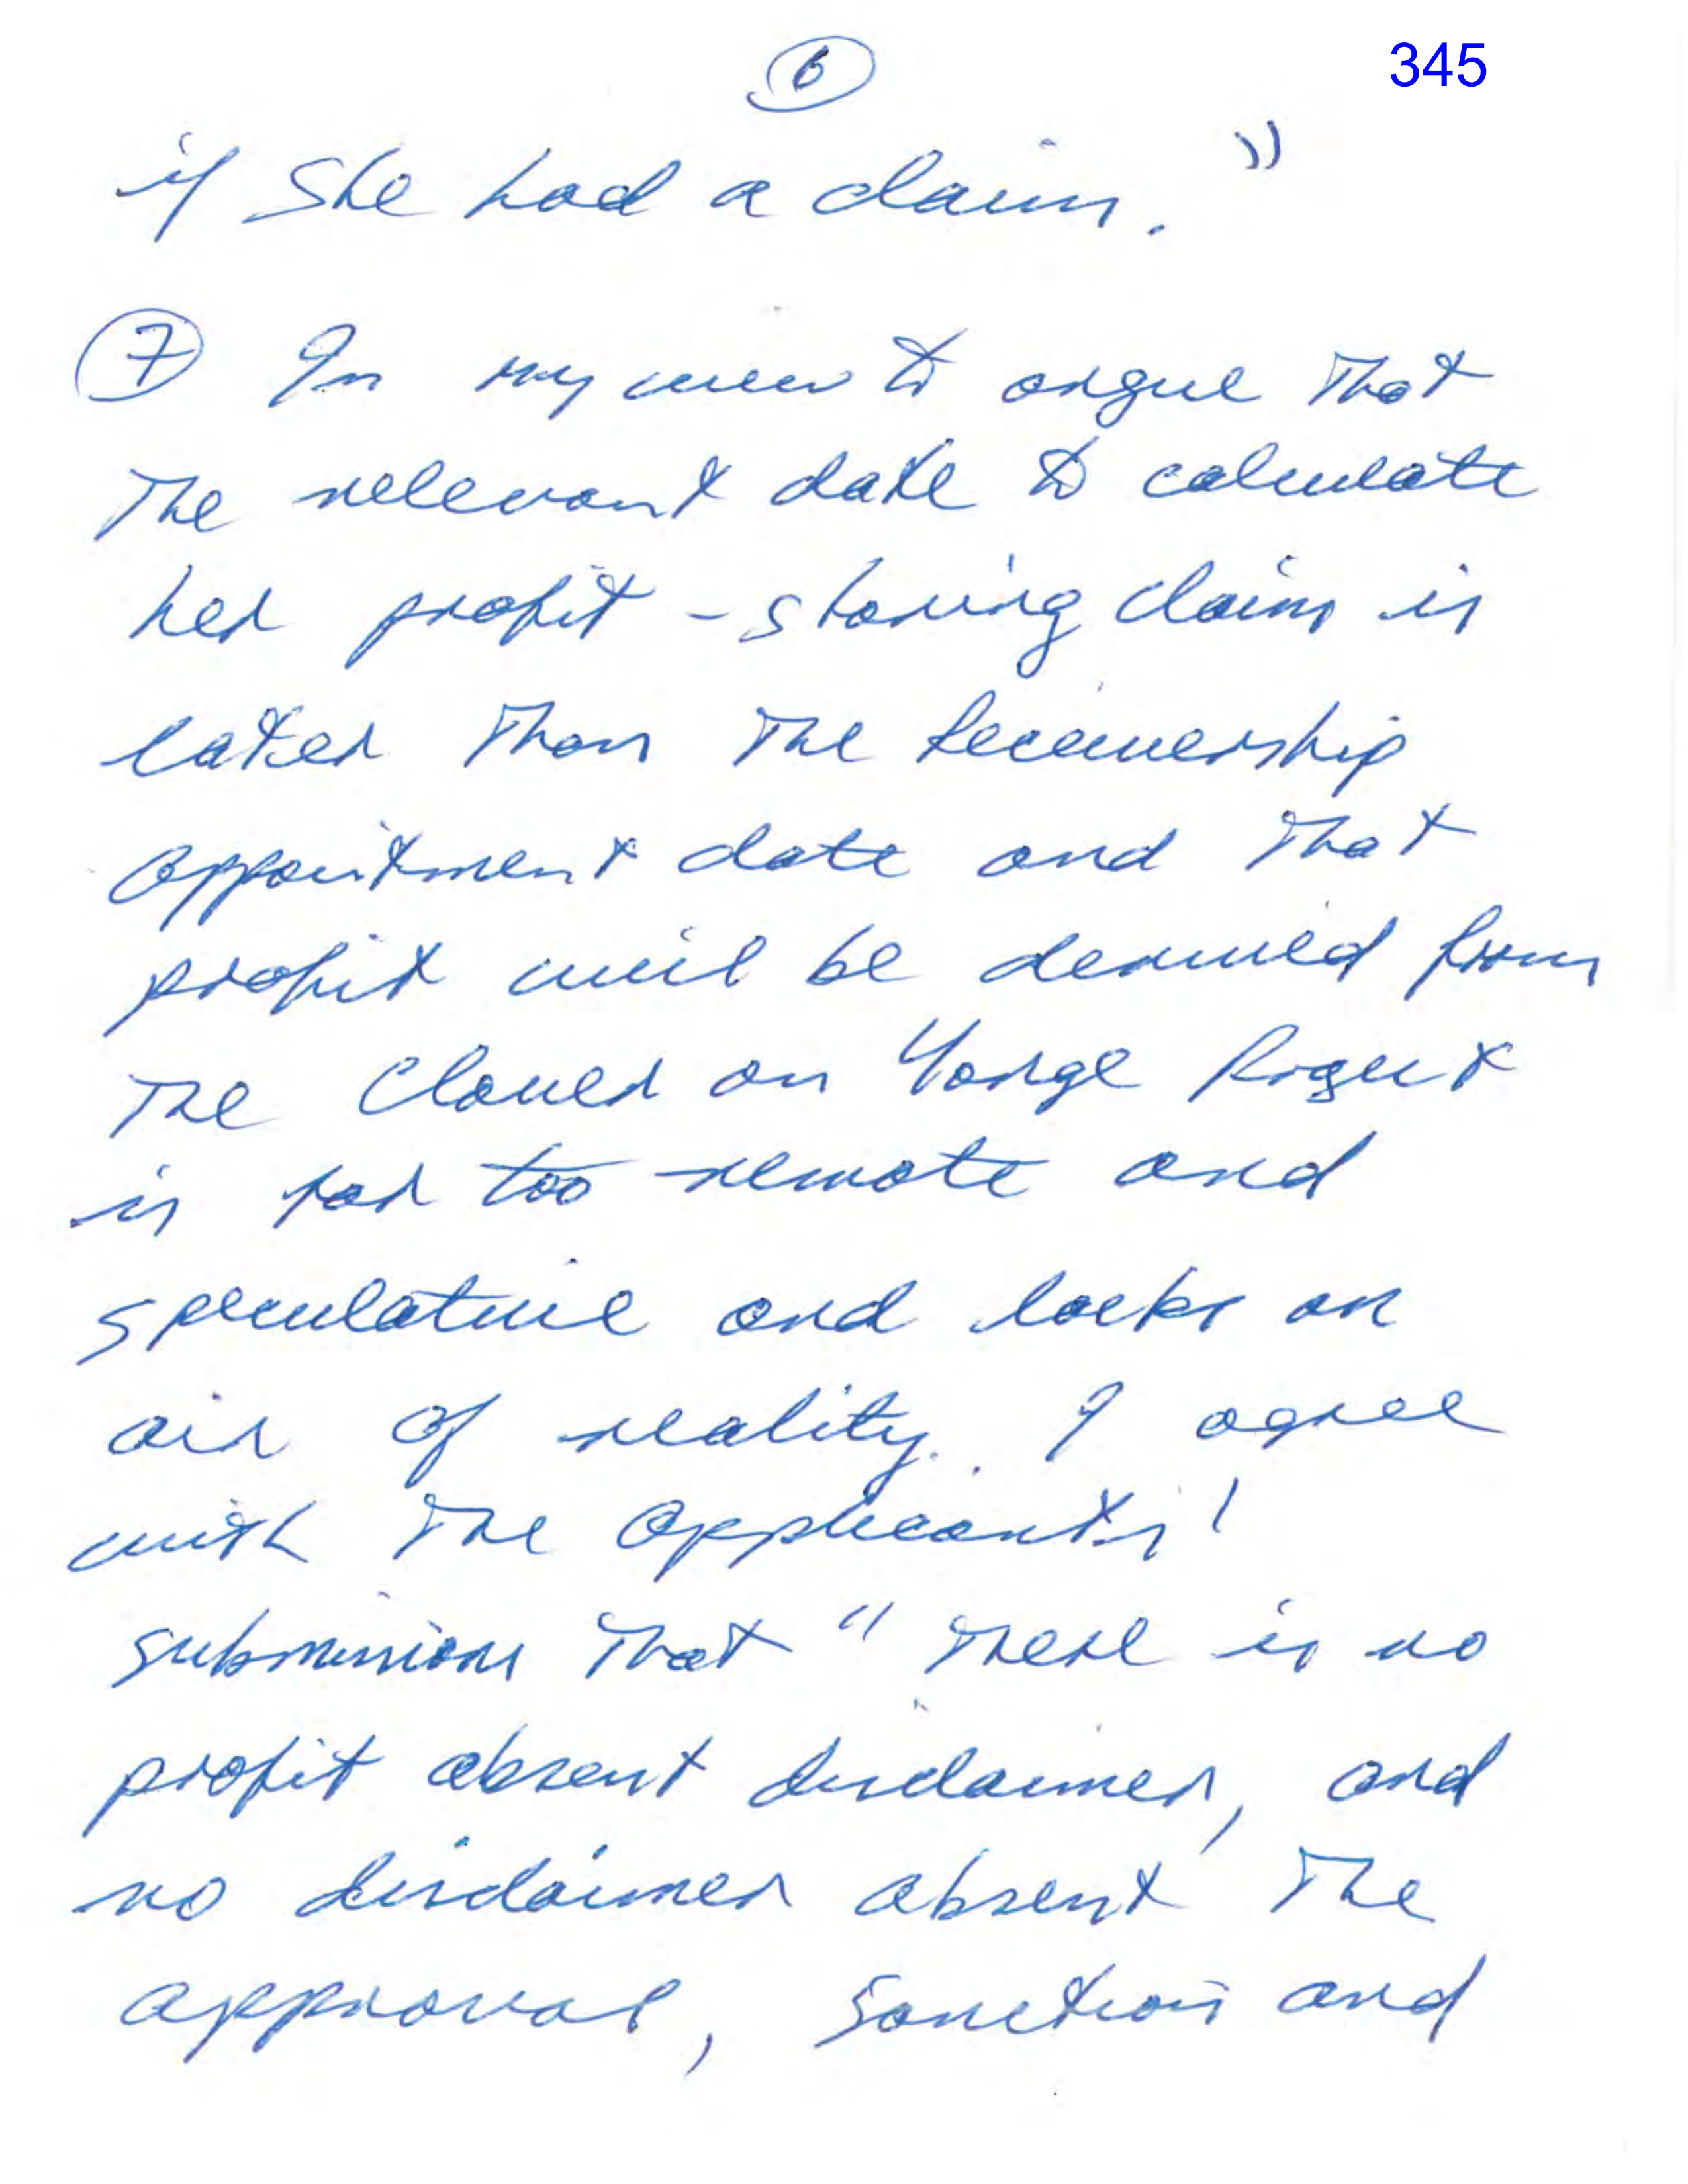 6
345
if she had a claim."
7 In my view to argue that
the relevant date to calculate
her profit-sharing claim is
later than the Receivership
appointment date and that
profit will be derived from
the Clover on Yonge Project
is far too remote and
speculative and lacks an
air of reality. I agree
with the applicants'
submissions that "there is no
profit absent disclaimer, and
no disclaimer absent the
approval, sanction and